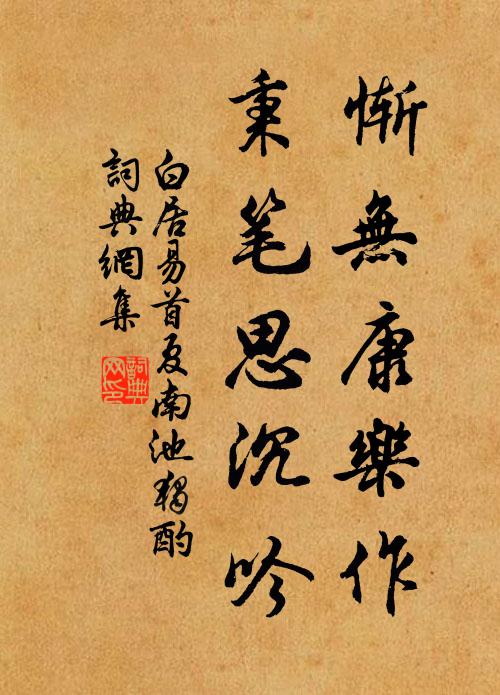 慚無康樂作
秉笔思沉吟
白居易首夏南池獨酌
詞典網集
詞典网印